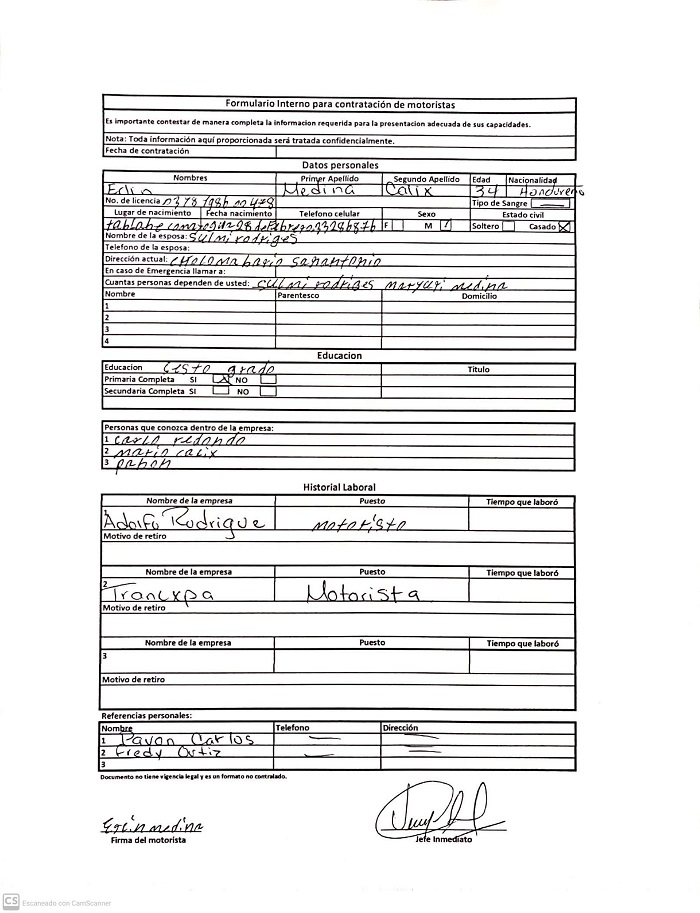 Formulario Interno para contratación de motoristas
Es importante contestar de manera completa la informacion requerida para la presentacion adecuada de sus capacidades.
Nota: Toda información aquí proporcionada será tratada confidencialmente.
Fecha de contratación
Datos personales
Nombres Primer Apellido Segundo Apellido Edad Nacionalidad
Edin Medina Calix 34 Hondureño
No. de licencia Tipo de Sangre
Lugar de nacimiento Fecha nacimiento Telefono celular Sexo Estado civil
F M Soltero Casado X
Nombre de la esposa: Sulmi rodriges
Telefono de la esposa:
Dirección actual: CHOLOMA bario sanantonio
En caso de Emergencia llamar a:
Cuantas personas dependen de usted: sulmi rodriges maryuri medina
Nombre Parentesco Domicilio
1
2
3
4
Educacion
Educacion Cesto grado Titulo
Primaria Completa SI X NO
Secundaria Completa SI NO
Personas que conozca dentro de la empresa:
1 carlo redondo
2 mario calix
3
Historial Laboral
Nombre de la empresa Puesto Tiempo que laboró
1 Adolfo Rodrigue motoristo
Motivo de retiro
Nombre de la empresa Puesto Tiempo que laboró
2 Trancxpa Motorista
Motivo de retiro
Nombre de la empresa Puesto Tiempo que laboró
3
Motivo de retiro
Referencias personales:
Nombre Telefono Dirección
1 Pavon Carlos
2 Fredy Ortiz
3
Documento no tiene vigencia legal y es un formato no contralado.
medina
Firma del motorista Jefe Inmediato
CS Escaneado con CamScanner